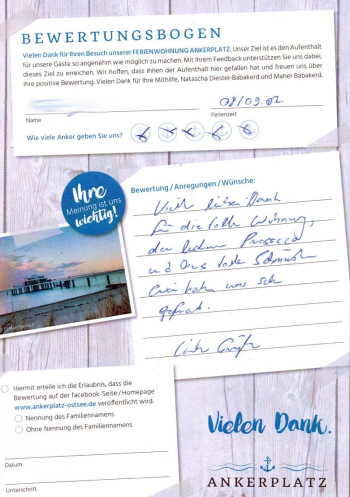 BEWERTUNGSBOGEN
Vielen Dank für Ihren Besuch unserer FERIENWOHNUNG ANKERPLATZ. Unser Ziel ist es den Aufenthalt
für unsere Gäste so angenehm wie möglich zu machen. Mit Ihrem Feedback unterstützen Sie uns dabei,
dieses Ziel zu erreichen. Wir hoffen, dass Ihnen der Aufenthalt hier gefallen hat und freuen uns über
Ihre positive Bewertung. Vielen Dank für Ihre Mithilfe, Natascha Diestel-Babakerd und Maher Babakerd.
Name
Ferienzeit
Wie viele Anker geben Sie uns?
Ihre
Meinung ist uns
wichtig!
Bewertung / Anregungen / Wünsche:
Vielen lieben Dank
für die tolle Wohnung,
den leckeren Prosecco
und
haben uns sehr
gefreut.
Liebe Grüße
Hiermit erteile ich die Erlaubnis, dass die
Bewertung auf der facebook-Seite / Homepage
www.ankerplatz-ostsee.de veröffentlicht wird.
Nennung des Familiennamens
Ohne Nennung des Familiennamens
Datum
Unterschrift
Vielen Dank.
ANKERPLATZ